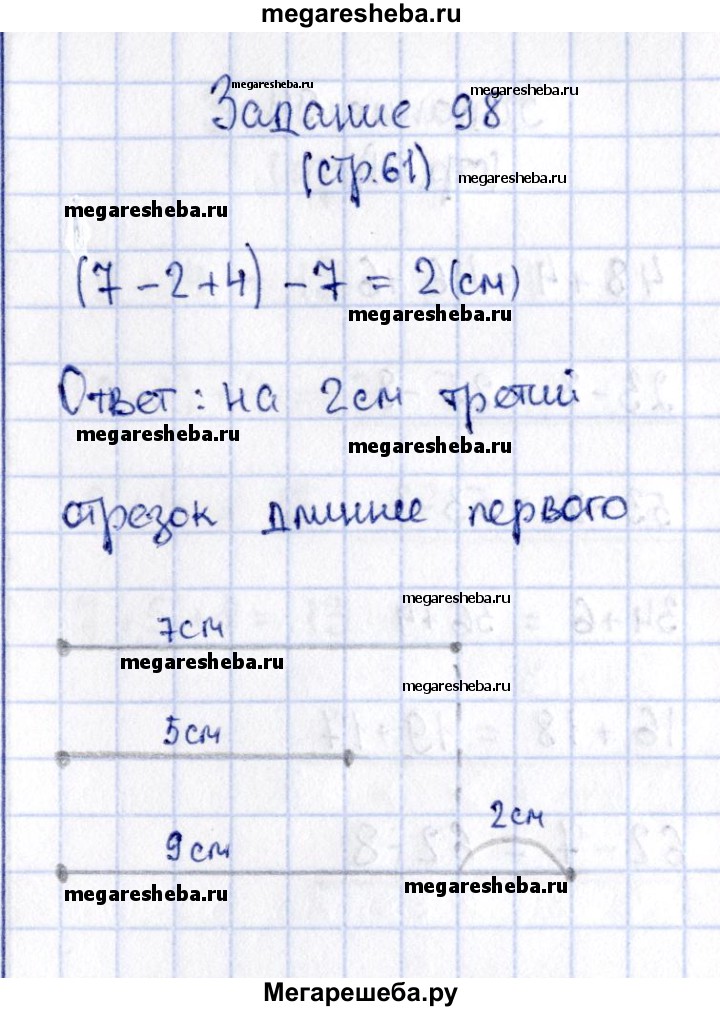 megaresheba.ru
megaresheba.ru
megaresheba.ru
Задание 98
(стр.61)
megaresheba.ru
megaresheba.ru
(7-2+4)-7=2(см)
megaresheba.ru
Ответ: на 2см третий
megaresheba.ru
megaresheba.ru
отрезок длиннее первого
megaresheba.ru
7см
megaresheba.ru
megaresheba.ru
5см
2см
9см
megaresheba.ru
megaresheba.ru
Мегарешеба.ру